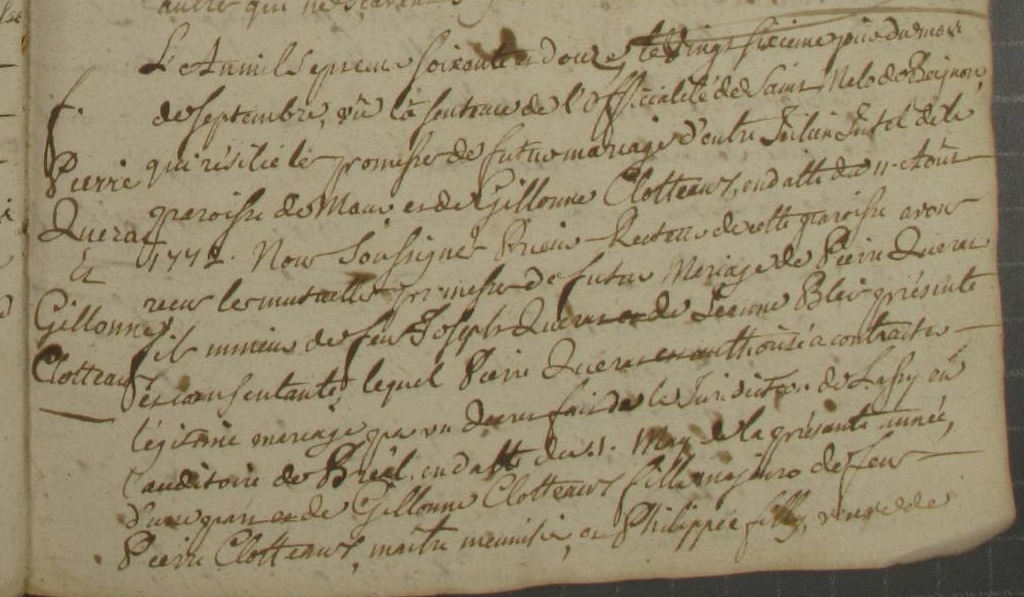 autre qui ne scavent
L'An mil sept cent soixante et douze, le vingt sixieme jour du mois
de septembre, vû la sentence de l'officialité de Saint Malo de Beignon,
qui résilie les promesses de futur mariage d'entre Julien Jutel de la
paroisse de Maure et de Gillonne Clotteaux, en datte du 11. Août
1772. Nous soussigné Prieur-Recteur de cette paroisse avons
recu les mutuelles promesses de futur Mariage de Pierre Querar
fils mineur de feu Joseph Querar et de Jeanne Blais présente
et consentante, lequel Pierre Querar est authorisé à contracter
légitime mariage par un decret fait de la Juridiction de Lassy en
l'auditoire de Bréal, en datte du May de la présente année,
d'une part et de Gillonne Clotteaux fille majeure de feu
Pierre Clotteaux, maitre menuisier, et Philippe filly, veuve de
f.
Pierre
Querar
et
Gillonne
Clotteaux